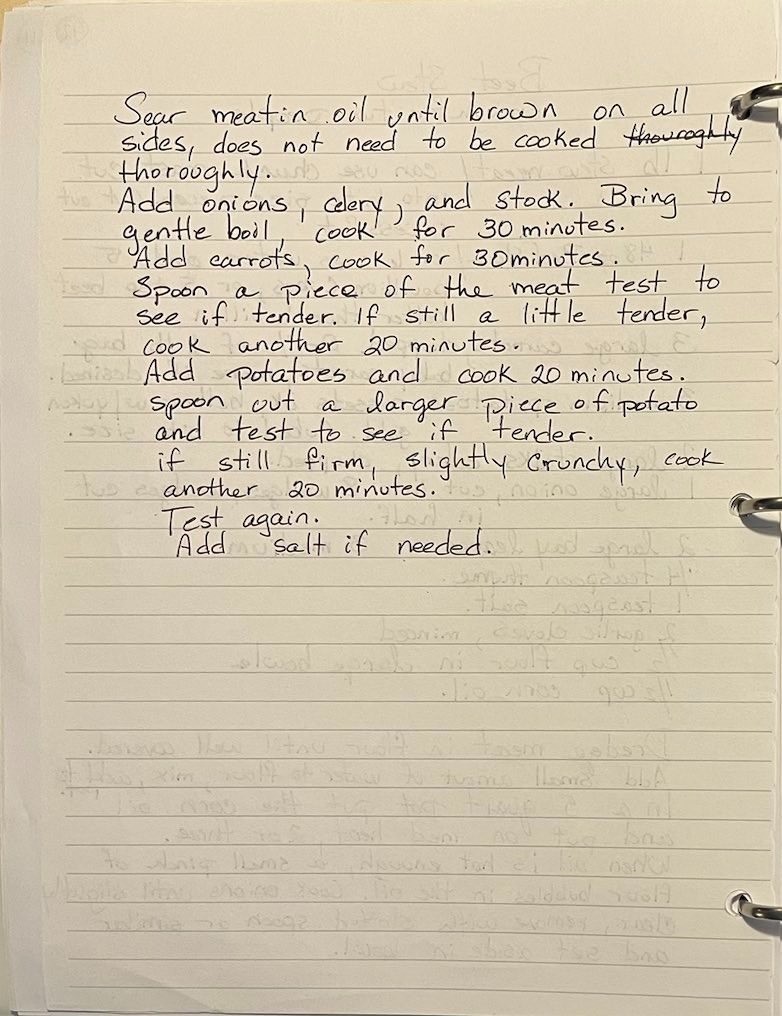 Sear meat in oil until brown on all
sides, does not need to be cooked thouroghly
thoroughly.
Add onions, celery, and stock. Bring to
gentle boil, cook for 30 minutes.
Add carrots, cook for 30 minutes.
Spoon a piece of the meat test to
see if tender. If still a little tender,
cook another 20 minutes.
Add potatoes and cook 20 minutes.
spoon out a larger piece of potato
and test to see if tender.
if still firm, slightly crunchy, cook
another 20 minutes.
Test again.
Add salt if needed.